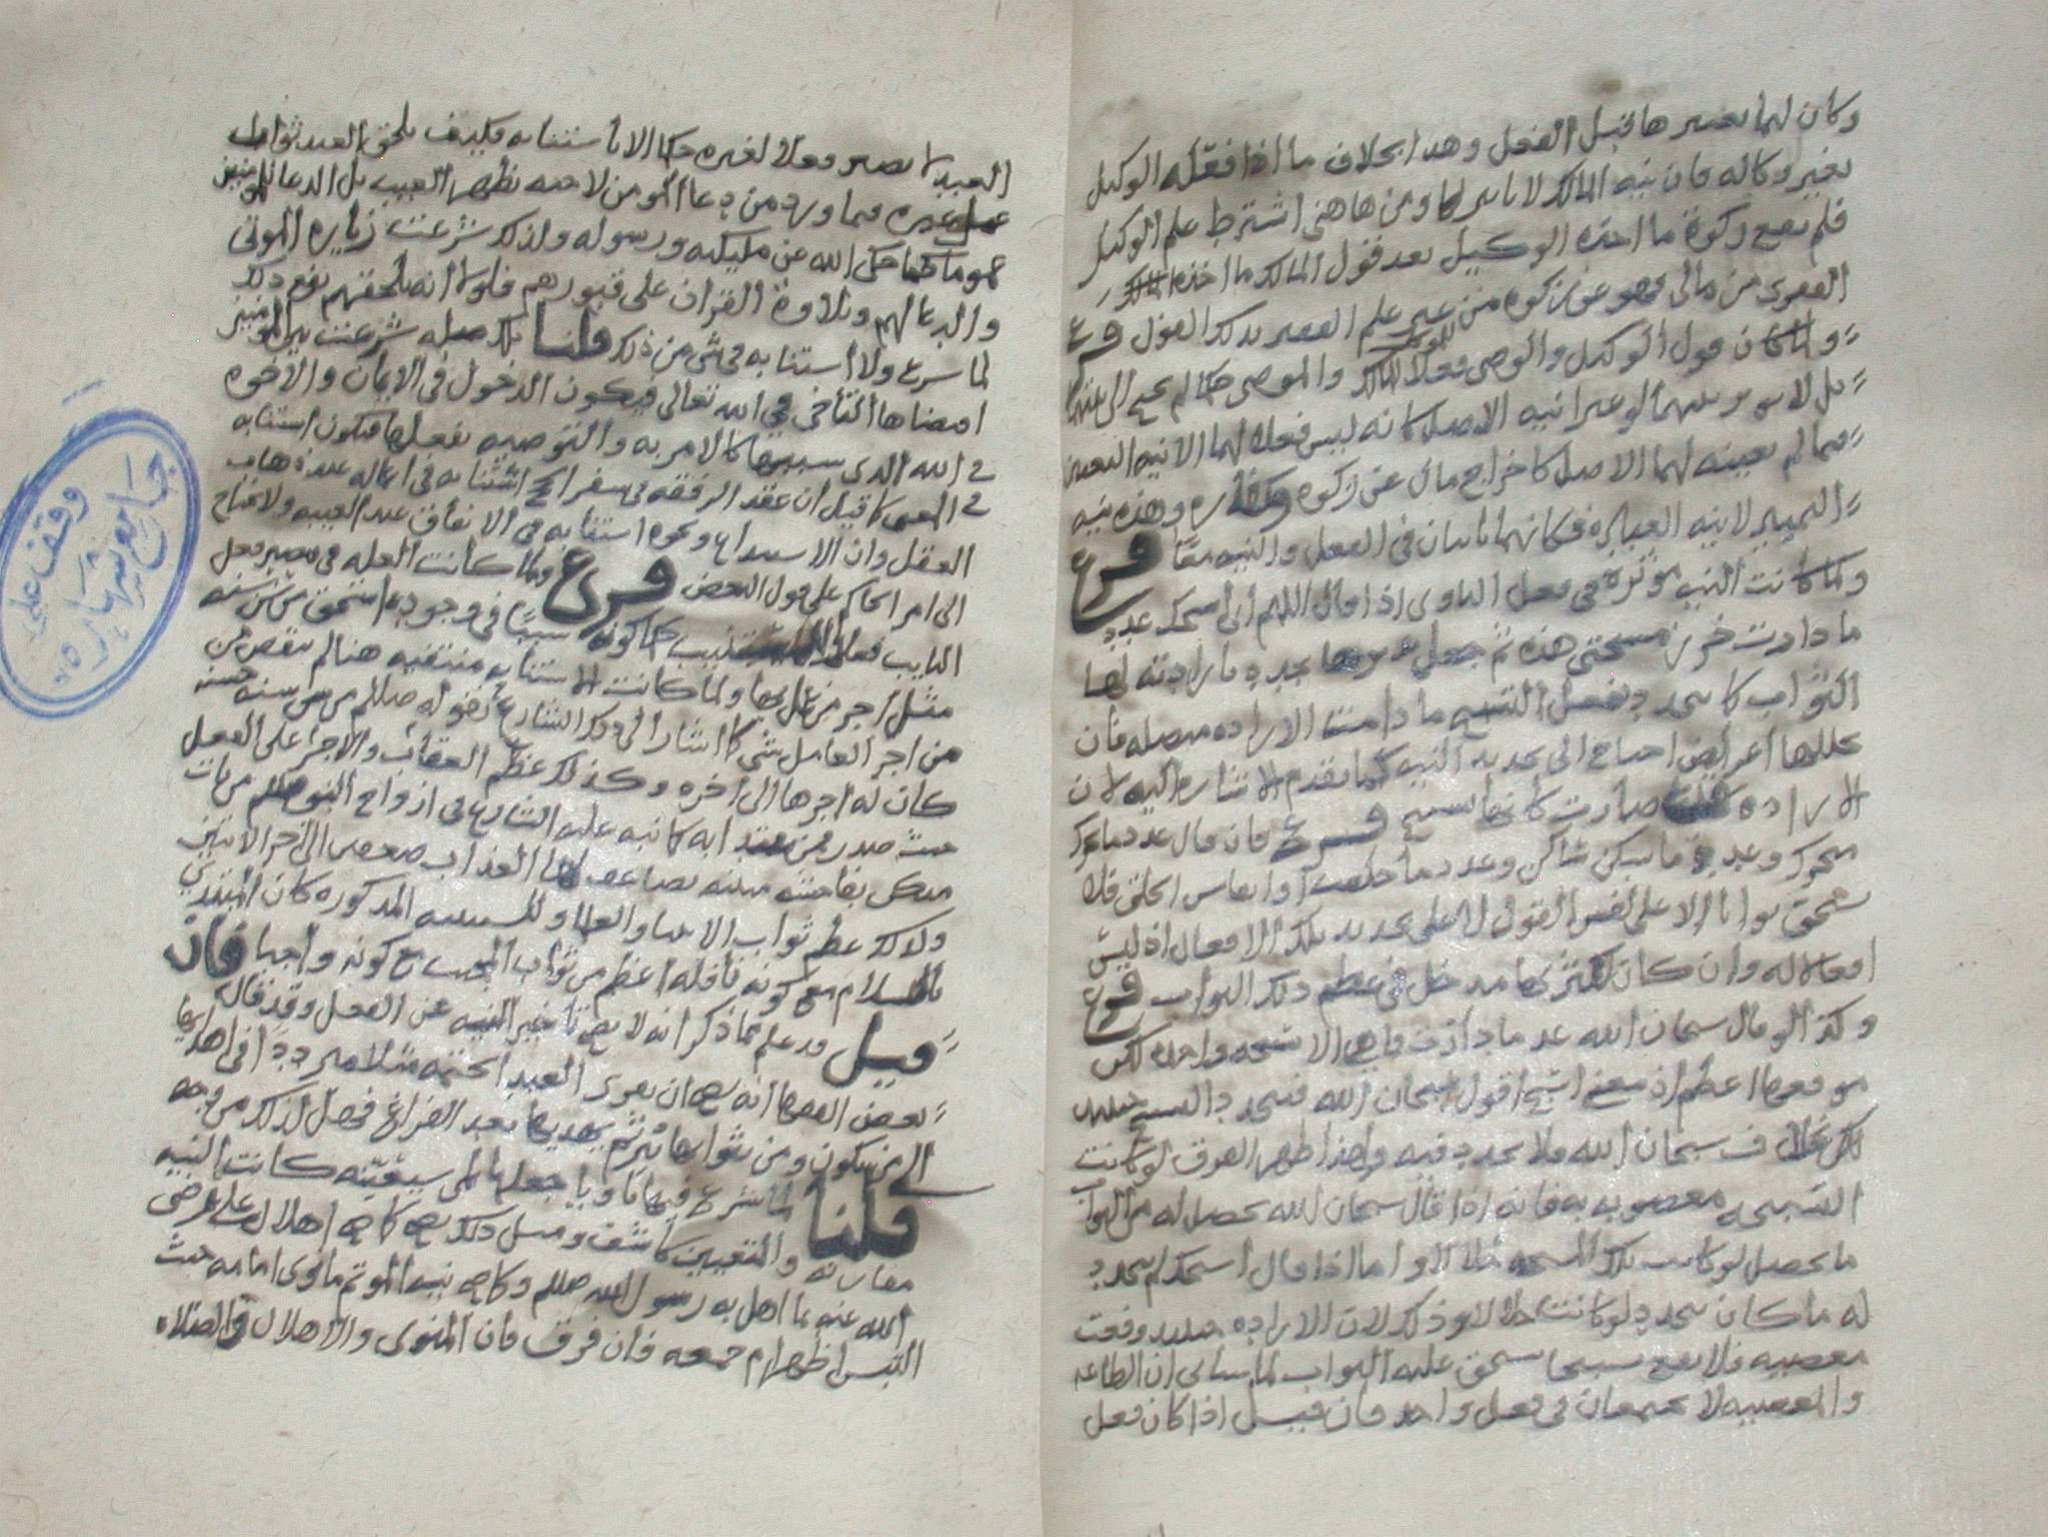 وكان لهما تصييرها قبل الفعل وهذا بخلاف ما اذا فعله الوكيل
بغير وكاله فان نيه المالك لا تاثير لها ومن هاهنى اشترط علم الوكيل
فلم تصح زكوة ما اخذه الوكيل بعد قول المالك ما اخذه
الفقرى من مالى فهو عن زكوة من غير علم الفقير بذلك القول فرع
ولما كان فعل الوكيل والوصى فعلا للموكل والموصى حكما لم يحتج الى نيتهما
بل لا نيتهما لو غيرا نيه الاصل كانه ليس فعلا لهما الا نيه التعيين
فيما لم يعينه لهما الاصل كاخراج مال عن زكوة وكفاره وهذه نيه
التمييز لا نيه العباده فكانهما نايبان فى الفعل والنيه معا فرع
ولما كانت النيه مؤثرة فى فعل الناوى اذا قال اللهم انى اسبحك عدد
ما دارت خرز مسبحتى هذه ثم جعل يديرها تجدد بارادته لها
الثواب كما يتجدد بفعل التسبيح ما دامت الاراده متصله فان
تخللها اعراض احتاج الى تجديد النيه كما تقدم الاشاره اليه لان
الاراده صارت كانها تسبيح فرع فان قال عدد ما يحرك
متحرك وعدد ما سكن ساكن وعدد ما خلقت او انفاس الخلق فلا
يستحق ثوابا الا على نفس القول لا على تجديد تلك الافعال اذ ليس
افعالا له وان كان لكثرتها مدخل فى عظم ذلك الثواب فرع
وكذا لو قال سبحان الله عدد ما دارت فما هى الا تسبيحه واحده لكن
موقعها اعظم اذ معنى اسبح اقول سبحان الله فتجدد التسبيح حينئذ
بخلاف سبحان الله فلا تجدد فيه ولهذا ظهر الفرق لو كانت
السبحه مغصوبه فانه اذا قال سبحان الله يحصل له من الثواب
ما يحصل لو كانت تلك السبحه حلالا واما اذا قال اسبحك لم يتجدد
له ما كان يتجدد لو كانت حلالا وذلك لان الاراده حينئذ وقعت
معصيه فلا تقع تسبيحا يستحق عليه الثواب لما سياتى ان الطاعه
والمعصيه لا يجتمعان فى فعل واحد فان قيل اذا كان فعل
العبد لا يصير فعلا لغيره حكما الا باستنابه فكيف يلحق العبد ثواب
عمل غيره فيما ورد من دعا المؤمن لاخيه بظهر الغيب بل الدعا للمؤمنين
عموما كما حكى الله عن مليكته ورسوله ولذلك شرعت زياره الموتى
والدعا لهم وتلاوة القران على قبورهم فلولا انه يلحقهم نفع ذلك
لما شرع ولا استنابه فى شى من ذلك قلنا تلك صله شرعت بين المؤمنين
اقتضاها التاخى فى الله تعالى فيكون الدخول فى الايمان والاخوه
فى الله الذى سببها كالامر به والتوصيه بفعلها فيكون استنابه
فى المعنى كما قيل ان عقد الرفقه فى سفر الحج استنابه فى اعماله عند ذهاب
العقل وان الاستيداع ونحوه استنابه فى الانفاق عند الغيبه ولا يحتاج
الى امر الحاكم على قول البعض فرع ولما كانت العله فى مصير فعل
النايب فعلا كونه سببا فى وجوده استحق من سن سنه
مثل اجر من عمل بها ولما كانت الاستنابه منتفيه هنا لم ينقص من
من اجر العامل شى كما اشار الى ذلك الشارع بقوله صللم من سن سنه حسنه
كان له اجرها الى اخره وكذلك عظم العقاب والاجر على الفعل
حيث صدر ممن يقتدا به كما نبه عليه الشارع فى ازواج النبى صللم من يات
منكن بفاحشه مبينه يضاعف لها العذاب ضعفين الى اخر الايتين
ولذلك عظم ثواب الانبيا والعلما وللسببيه المذكوره كان المبتدى
بالسلام مع كونه نافله اعظم من ثواب المجيب مع كونه واجبا فان
قيل قد علم مما ذكر انه لا يصح تاخير النيه عن الفعل وقد قال
بعض الفقها انه يصح ان يقرى العبد الختمه مثلا مترددا فى اهدايها
الى من يكون ومن ثوابها ثم يهديها بعد الفراغ فهل لذلك من وجه
قلنا لما شرع فيها ناويا جعلها لمن سيعينه كانت النيه
مقارنه والتعيين كاشف ومثل ذلك يصح كما صح اهلال على رضى
الله عنه بما اهل به رسول الله صللم وكما صح نيه المؤتم ما نوى امامه حيث
التبس اظهر ام جمعه فان فرق فان المنوى والاهلال والصلاه
وقف على
جامع شهاره